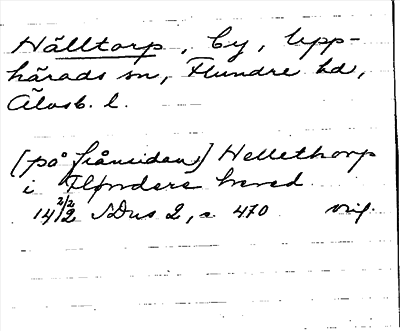 Hälltorp, by, Upp-
härads sn, Flundre hd,
Älvsb. l.
[på frånsidan] Hellethorp
i Flonders hered
14 2/2 12 SDns 2, s. 470 orig.